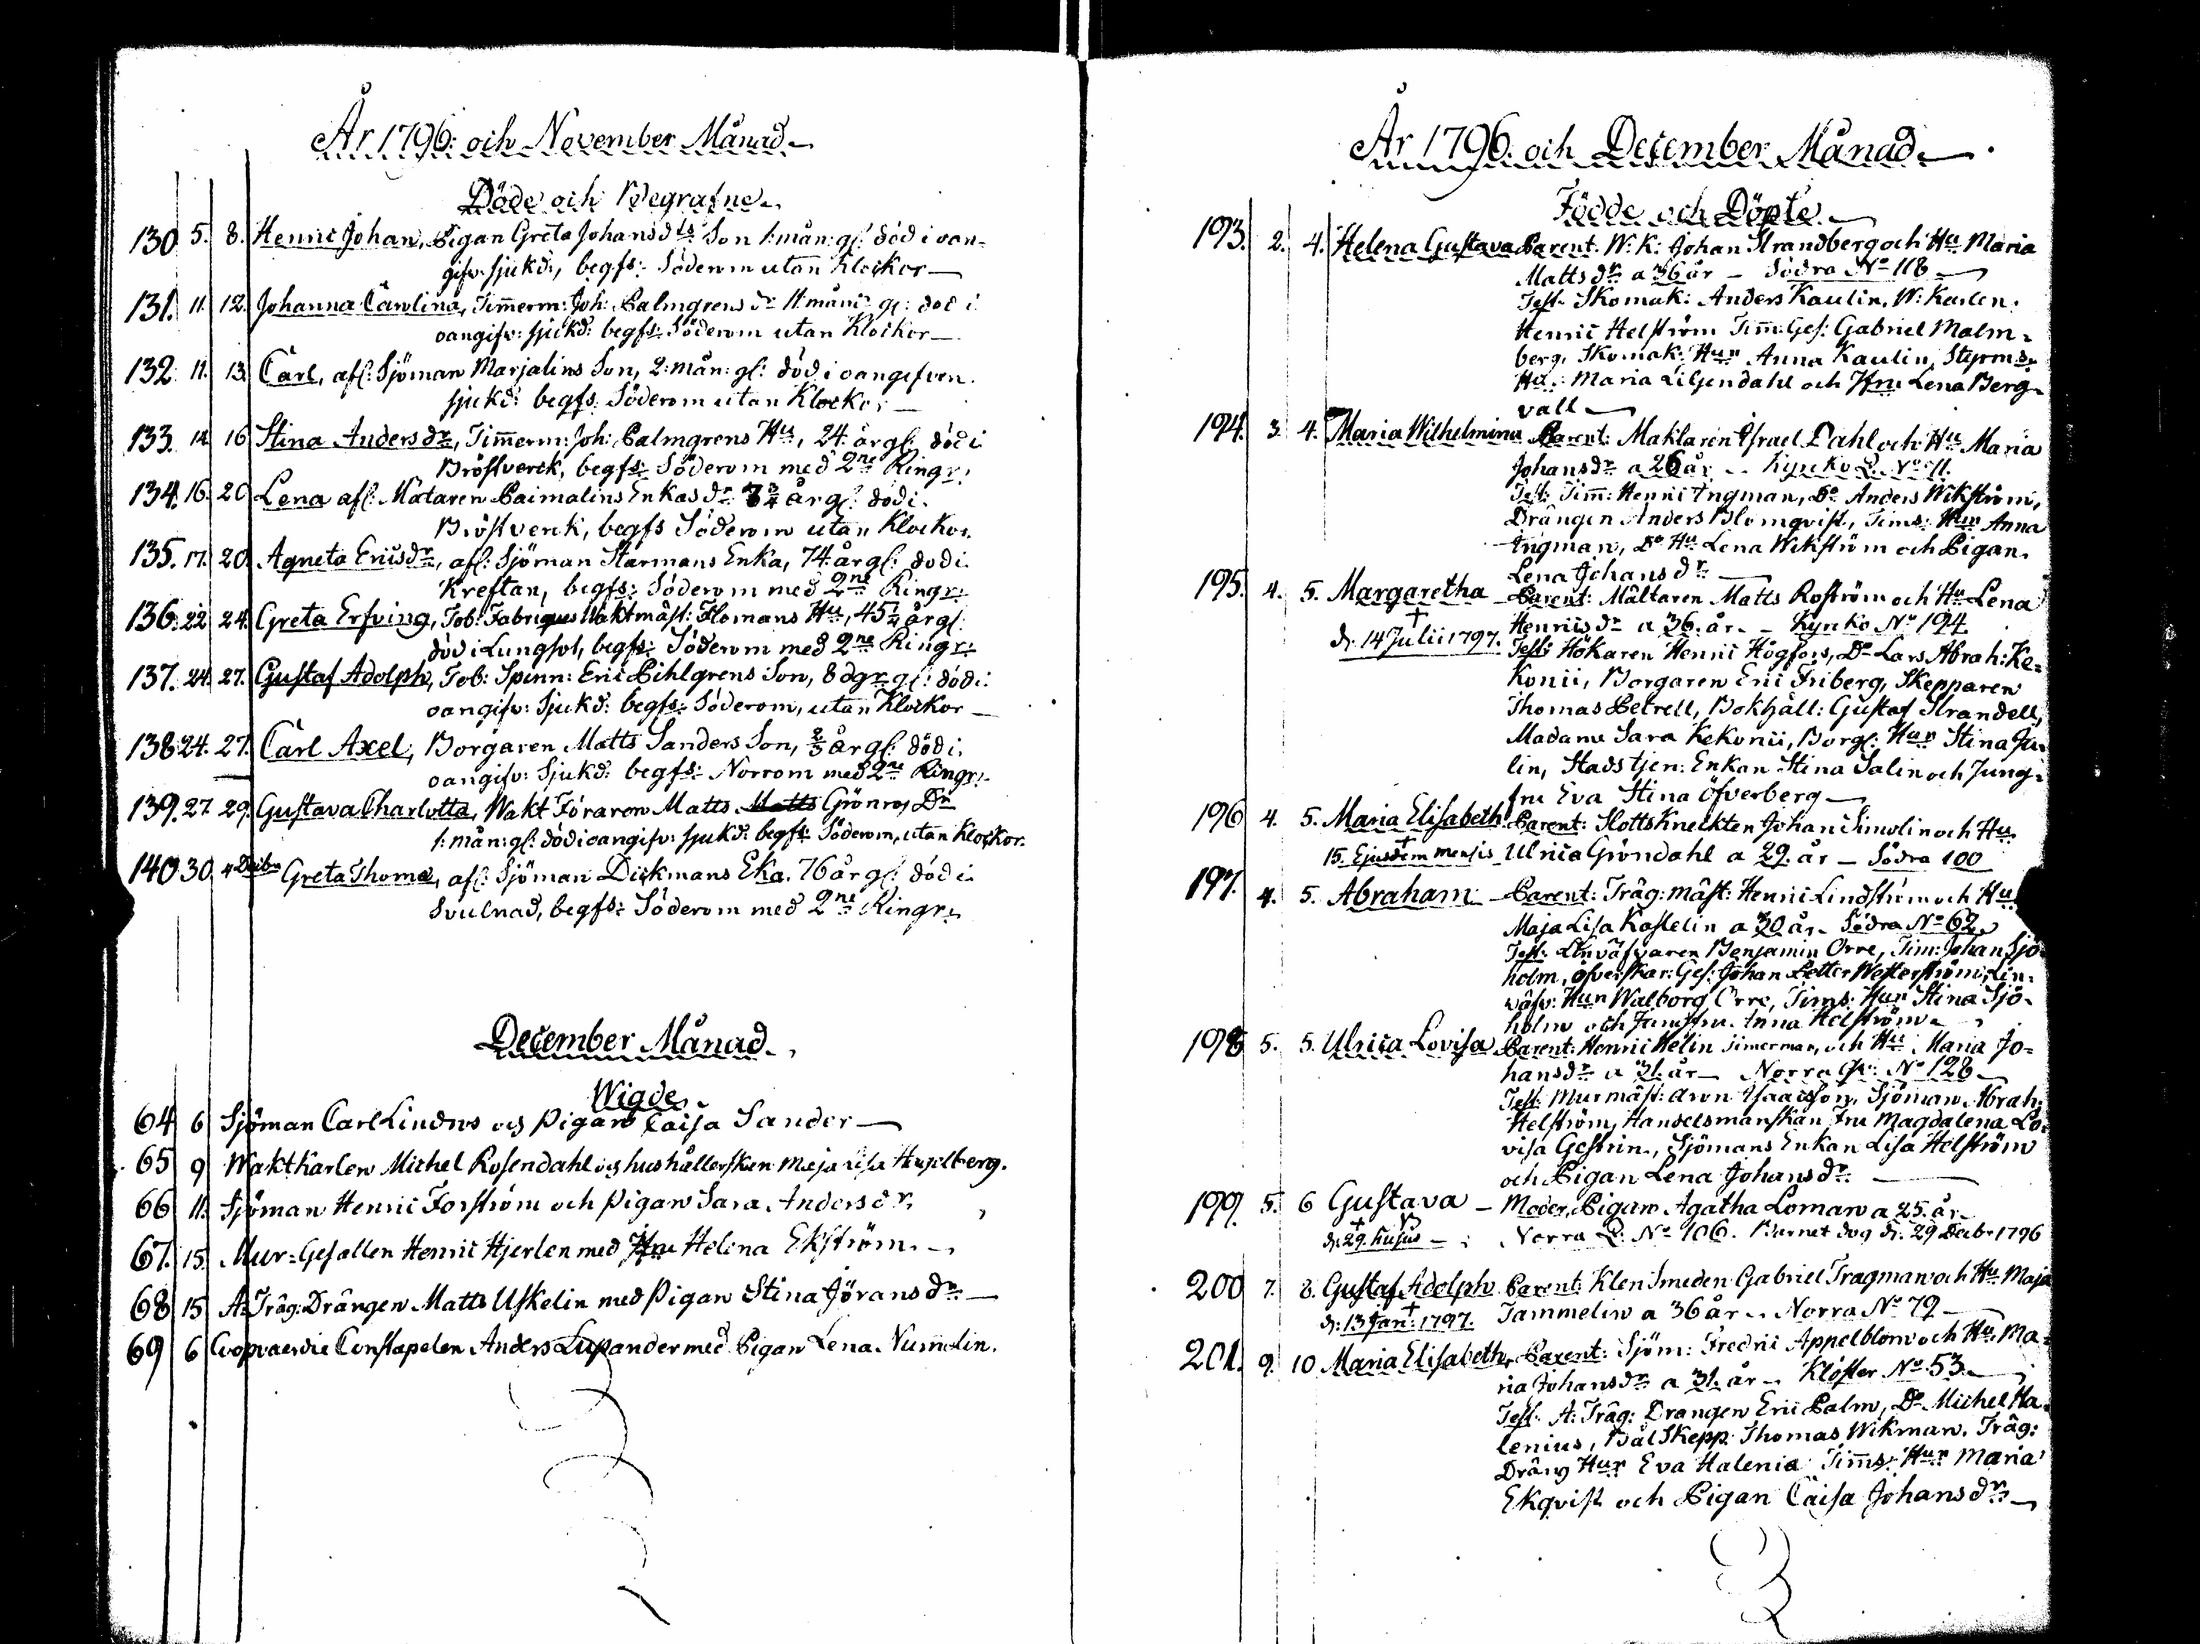 År 1796: och November Månad
Döde och Begrafne
130 5. 8. Henric Johan, Pigan Greta Johansdrs Son 1: mån: gl: död i oan-
gifv: sjukd:, begfs: Söderom utan Klockor
131. 11. 12. Johanna Carolina, Tim̄erm: Joh: Palmgrens dr 11 mån: gl: död i
oangifv: sjukd: begfs: Söderom utan Klockor
132. 11. 13. Carl, afl: Sjöman Marjalins Son, 2: mån: gl: död i oangifven
sjukd: begfs: Söderom utan Klockor
133. 14 16 Stina Andersdr, Tim̄erm: Joh: Palmgrens Hu, 24: år gl: död i
Bröstverck, begfs: Söderom med 2ne Ringr:
134. 16. 20 Lena afl: Mätaren Paimalins Enkas dr 3/4 år gl: död i
Bröstverck, begfs Söderom utan Klockor.
135. 17. 20. Agneta Ericsdr, afl: Sjöman Starmans Enka, 74: år gl: död i
Kreftan, begfs: Söderom med 2ne Ringr:
136: 22 24. Greta Erfving, Tob: Fabriques Waktmäst: Flomans Hu, 45 1/4 år gl:
död i Lungsot, begfs: Söderom med 2ne Ringr:
137. 24. 27. Gustaf Adolph, Tob: Spinn: Eric Pihlgrens Son, 8 dgr gl: död i
oangifv: Sjukd: begfs: Söderom, utan Klockor
138 24. 27. Carl Axel, Borgaren Matts Sanders Son, 2/3 år gl: död i
oangifv: Sjukd: begfs: Norrom med 2ne Ringr:
139. 27. 29. Gustava Charlotta, Wakt Föraren Matts Matts Grönros Dr
1: mån: gl: död i oangifv: sjukd: begfs: Söderom, utan Klockor.
140 30. 4 Decbr Greta Thomæ, afl: Sjöman Dickmans Eka. 76 år gl: död i
Svulnad, begfs: Söderom med 2ne Ringr:
December Månad
Wigde
64 6 Sjöman Carl Lindros och Pigan Caisa Sander
65 9 Waktkarlen Michel Rosendahl och hushållerskan Maja Lisa Hagelberg.
66 11. Sjöman Henric Forström och Pigan Sara Andersdr
67. 15. Mur-Gesällen Henric Hjerlen med Jfru Helena Ekström
68 15 A: Träg: Drängen Matts Uskelin med Pigan Stina Jöransdr
69 6 Coopvaerdie Constapelen Anders Lupander med Pigan Lena Num̄elin.
År 1796: och December Månad
Födde och Döpte
193. 2. 4. Helena Gustava Parent: W: K: Johan Strandberg och Hu Maria
Mattsdr a 36 år – Södra No 118
Test: Skomak: Anders Kaulin, W: Karlen
Henric Helström Tim̄: Ges: Gabriel Malm-
berg, Skomak: Hun Anna Kaulin, Styrms:
Hu: Maria Liljendahl och Jfru Lena Berg-
vall
194. 3. 4. Maria Wilhelmina Parent: Maklaren Israel Dahl och Hu Maria
Johansdr a 26 år – Kyrko Q: No 11.
Test: Tim̄: Henric Ingman, Do Anders Wikström,
Drängen Anders Blomqvist, Tims: Hun Anna
Ingman, Do Hu Lena Wikström och Pigan
Lena Johansdr
195. 4. 5. Margaretha Parent: Mältaren Matts Roström och Hu Lena
d: 14 Julii 1797. Henricsdr a 36. år – Kyrko No 194
Test: Hökaren Henric Högfors, Do Lars Abrah: Ke-
konii, Borgaren Eric Friberg, Skepparen
Thomas Petrell, Bokhåll: Gustaf Strandell,
Madame Sara Kekonii, Borg: Hun Stina Ju-
lin, Stadstjen: Enkan Stina Salin och Jung-
fru Eva Stina Öfverberg
196 4. 5. Maria Elisabeth Parent: Slotts Kneckten Johan Simolin och Hu
15. Ejusdem mensis Ulrica Gröndahl a 29. år – Södra 100
197. 4. 5. Abraham Parent: Träg: mäst: Henric Lindström och Hu
Maja Lisa Kastelin a 30 år – Södra No 62
Test: Linväfvaren Benjamin Orre, Tim: Johan Sjö-
holm, öfverskär: Ges: Johan Petter Wetterström, Lin-
väfv: Hun Walborg Orre, Tims: Hun Stina Sjö-
holm och Jungfru Anna Helström
198 5. 5. Ulrica Lovisa Parent: Henric Helin Timerman, och Hu Maria Jo-
hansdr a 31. år – Norra Qv: No 128
Test: Murmäst: Aron Isaacsson, Sjöman Abrah:
Helström, Handelsmanskan Fru Magdalena Lo-
visa Gestrin, Sjömans Enkan Lisa Helström
och Pigan Lena Johansdr
199. 5. 6 Gustava – Moder, Pigan Agatha Loman a 25. år
d: 29. hujus – Norra Q: No 106. Barnet dog d: 29 Decbr 1796
200 7. 8. Gustaf Adolph Parent: Klensmeden Gabriel Tragman och Hu Maja
d: 13 Jan: 1797. Tammelin a 36 år – Norra No 79
201. 9. 10 Maria Elisabeth, Parent: Sjöm: Fredric Appelblom och Hu Ma-
ria Johansdr a 31. år – Klöster No 53
Test: A: Träg: Drangen Eric Palm, Do Michel Ha-
lenius, Båtskepp: Thomas Wikman. Träg:
Dräng Hun Eva Halenia Tim̄s: Hun Maria
Ekqvist och Pigan Caisa Johansdr